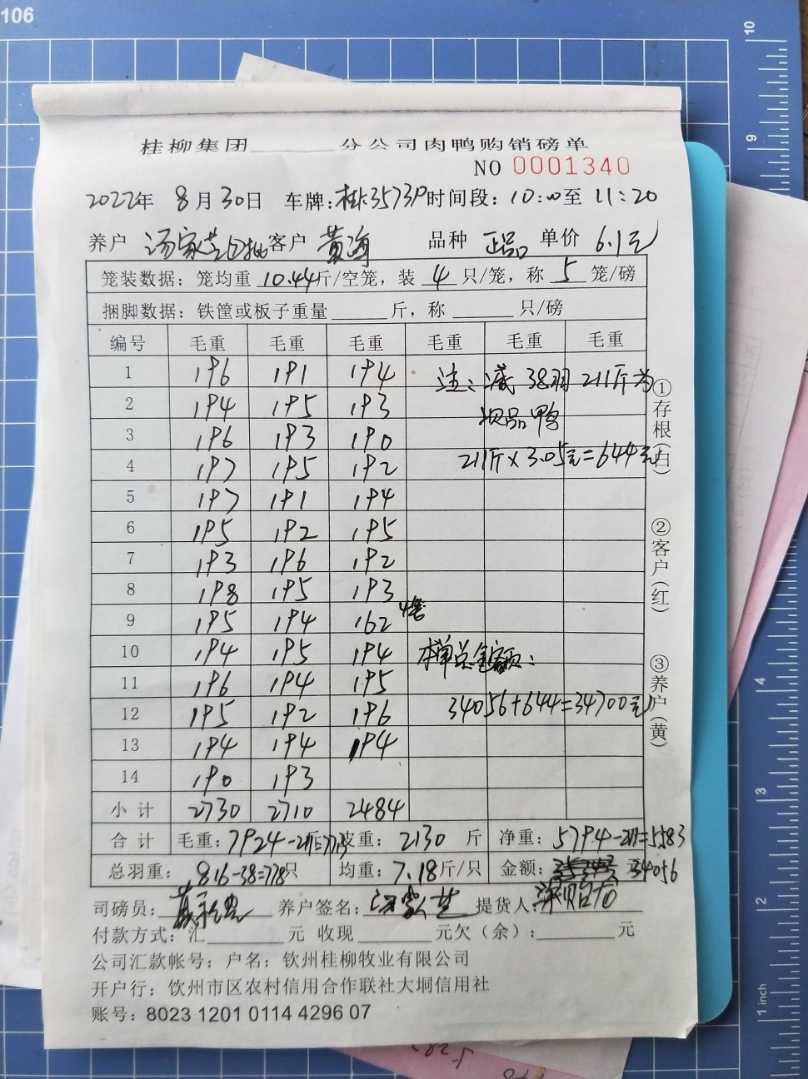 106
桂柳集团______分公司肉鸭购销磅单
NO 0001340
2022年 8月30日 车牌:桂K3573P 时间段:10:00至 11:20
养户 客户 黄海 品种 正品 单价 6.1元
笼装数据:笼均重 10.44斤/空笼,装 4 只/笼,称 5 笼/磅
捆脚数据:铁筐或板子重量______斤,称______只/磅
编号 毛重 毛重 毛重 毛重 毛重 毛重
1 196 191 194 注:减 38羽 211斤为
2 194 195 193 次品鸭
3 196 193 190
4 197 195 192 211斤×3.05元=644元
5 197 191 194
6 195 192 195
7 193 196 192
8 198 195 193
9 195 194 162
10 194 195 194 本单总金额:
11 196 194 195
12 195 192 196 34056+644=34700元
13 194 194 194
14 190 193
小计 2730 2710 2484
合计 毛重:7924-211斤=7713 皮重:2130 斤 净重:5794-211=5583
总羽重:816-38=778只 均重:7.18斤/只 金额:34056
司磅员: 养户签名: 提货人:
付款方式:汇______元 收现______元欠(余):______元
公司汇款帐号:户名:钦州桂柳牧业有限公司
开户行:饮州市区农村信用合作联社大垌信用社
账号:8023 1201 0114 4296 07
①存根(白)
②客户(红)
③养户(黄)
10
9
4
3
2
1 inch